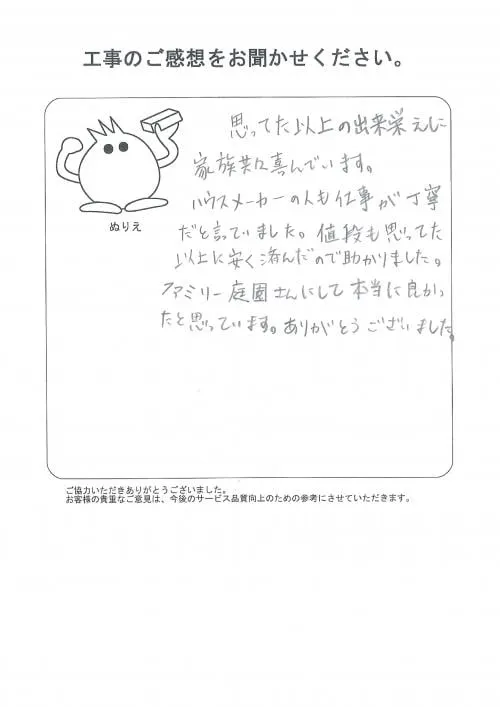 工事のご感想をお聞かせください。
思ってた以上の出来栄えに
家族共々喜んでいます。
ハウスメーカーの人も仕事が丁寧
だと言っていました。値段も思ってた
以上に安く済んだので助かりました。
ファミリー庭園さんにして本当に良かっ
たと思っています。ありがとうございました。
ぬりえ
ご協力いただきありがとうございました。
お客様の貴重なご意見は、今後のサービス品質向上のための参考にさせていただきます。